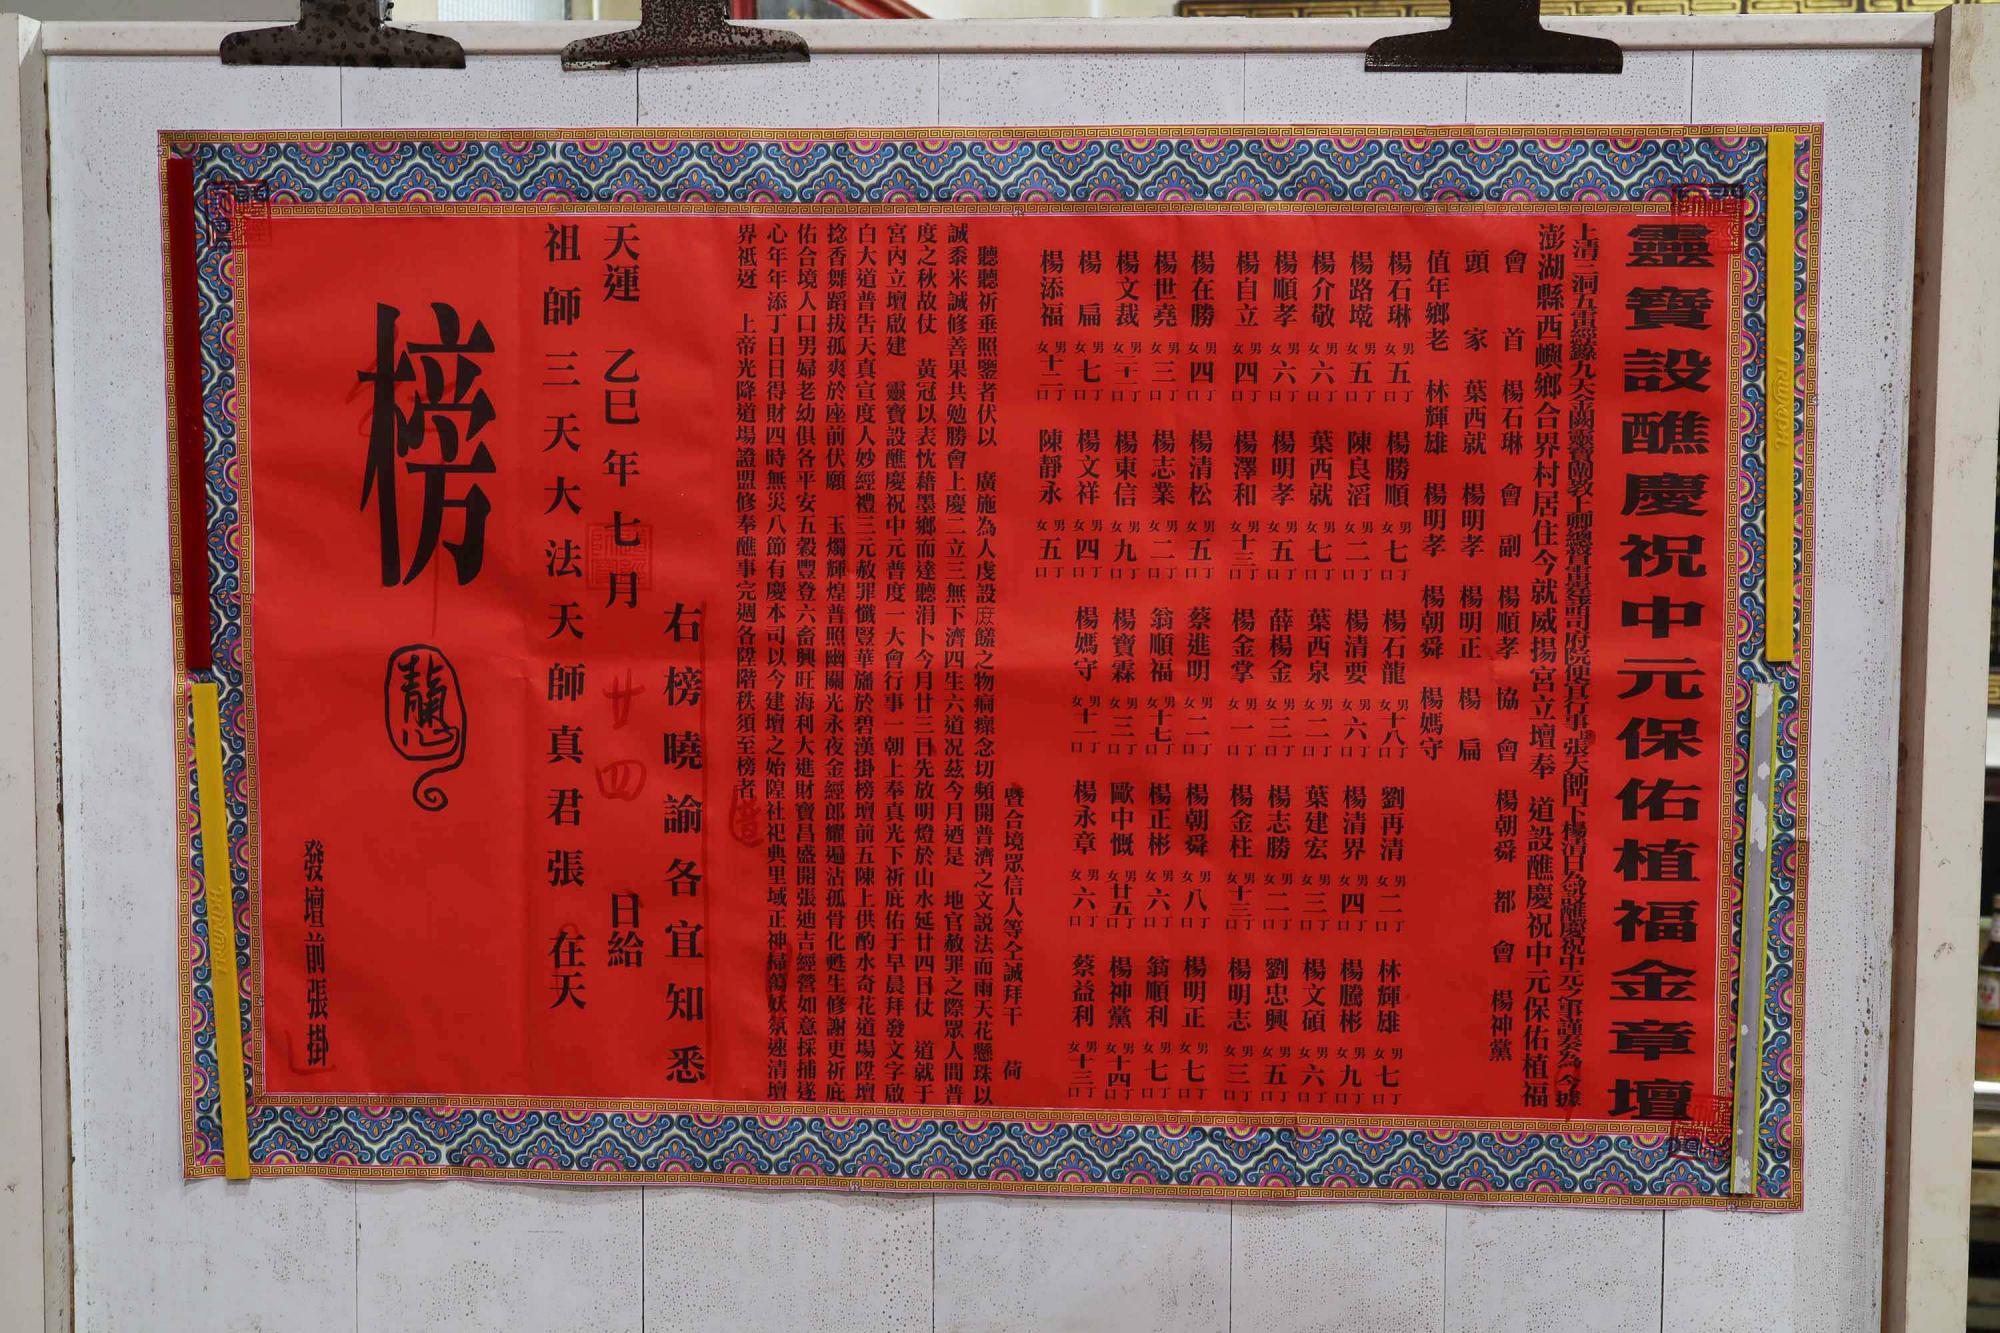 靈寶設醮慶祝中元保佑植福金章壇
上清三洞五雷經籙九天金闕靈寶闡教上卿總督雷霆諸司府院便宜行事張天師門下楊清日為設醮慶祝中元今事謹奏為 今據
澎湖縣西嶼鄉合界村居住今就威揚宮立壇奉 道設醮慶祝中元保佑植福
會首 楊石琳 會副 楊順孝 協會 楊朝舜 都會 楊神黨
頭家 葉西就 楊明孝 楊明正 楊扁
值年鄉老 林輝雄 楊明孝 楊朝舜 楊媽守
楊石琳 男五丁女一口 楊勝順 男七丁女一口 楊石龍 男十八丁女口 劉再清 男二丁女口 林輝雄 男七丁女口
楊路墘 男五丁女口 陳良滔 男二丁女口 楊清要 男六丁女口 楊清界 男四丁女口 楊騰彬 男九丁女口
楊介敬 男六丁女口 葉西就 男七丁女口 葉西泉 男二丁女口 葉建宏 男三丁女口 楊文碩 男六丁女口
楊順孝 男六丁女口 楊明孝 男五丁女口 薛楊金 男三丁女口 楊志勝 男二丁女口 劉忠興 男五丁女口
楊自立 男四丁女口 楊澤和 男十三丁女口 楊金掌 男一丁女口 楊金柱 男十三丁女口 楊明志 男三丁女口
楊在勝 男四丁女口 楊清松 男五丁女口 蔡進明 男二丁女口 楊朝舜 男八丁女口 楊明正 男七丁女口
楊世堯 男三丁女口 楊志業 男二丁女口 翁順福 男十七丁女口 楊正彬 男六丁女口 翁順利 男七丁女口
楊文裁 男三十一丁女口 楊東信 男九丁女口 楊寶霖 男三丁女口 歐中慨 男廿五丁女口 楊神黨 男十四丁女口
楊扁 男七丁女口 楊文祥 男四丁女口 楊媽守 男十一丁女口 楊永章 男六丁女口 蔡益利 男十三丁女口
楊添福 男十二丁女口 陳靜永 男五丁女口
暨合境眾信人等仝誠拜干 荷
聽聽祈垂照鑒者伏以 廣施為人虔設庶饈之物痌瘝念切頻開普濟之文説法而雨天花懸珠以
誠黍米誠修善果共勉勝會上慶二立三無下濟四生六道况茲今月迺是 地官赦罪之際眾人間普
度之秋故仗 黃冠以表忱藉墨鄉而達聽涓卜今月廿三日先放明燈於山水延廿四日仗 道就于
宮內立壇啟建 靈寶設醮慶祝中元普度一大會行事一朝上奉真光下祈庇佑于早晨拜發文字啟
白大道普告天真宣度人妙經禮三元赦罪懺豎華旛於碧漢掛榜壇前五陳上供酌水奇花道場陞壇
捻香舞蹈拔孤爽於座前伏願 玉燭輝煌普照幽關光永夜金經郎耀遍沾孤骨化甦生修謝更祈庇
佑合境人口男婦老幼俱各平安五穀豐登六畜興旺海利大進財寶昌盛開張迪吉經營如意採捕遂
心年年添丁日日得財四時無災八節有慶本司以今建壇之始隍社祀典里域正神掃蕩妖氛速清壇
界祗迓 上帝光降道場證盟修奉醮事完週各陞階秩須至榜者
右榜曉諭各宜知悉
天運 乙巳年七月 廿四 日給
祖師三天大法天師真君張 在天
榜
發壇前張掛